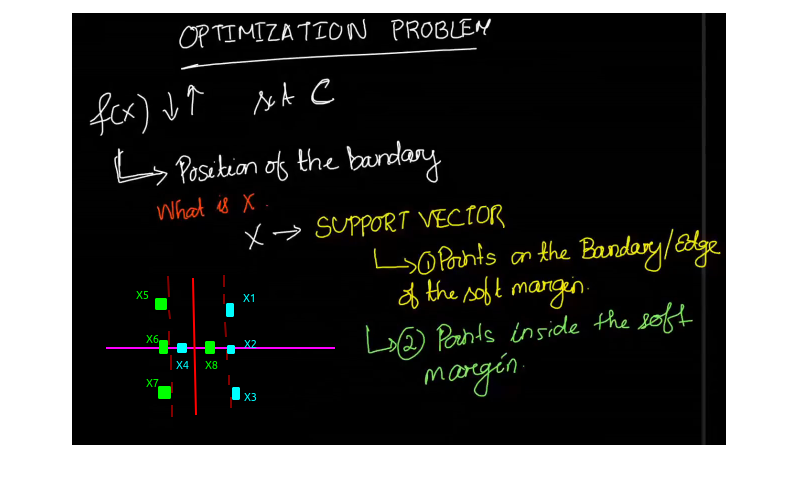 OPTIMIZATION PROBLEM
f(x) ↓↑ s.t C
↳ Position of the bandary
What is X.
X → SUPPORT VECTOR
↳ ① Points on the Bandary/Edge
of the soft margin.
↳ ② Points inside the soft
margin.
X5 X1
X6 X2
X4 X8
X7 X3